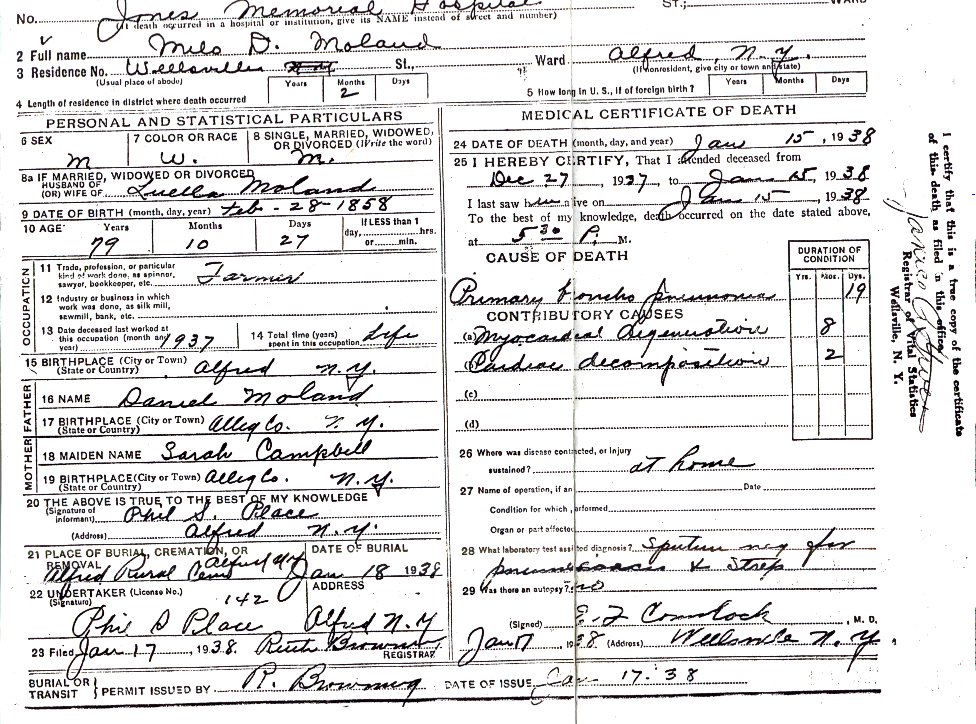 No. Jones Memorial Hospital St.;
(If death occurred in a hospital or institution, give its NAME instead of street and number)
2 Full name Milo D. Moland
3 Residence No. Wellsville St., Ward Alfred, N.Y.
(Usual place of abode) (If nonresident, give city or town and state)
Years Months Days
2
4 Length of residence in district where death occurred
5 How long in U. S., if of foreign birth? Years Months Days
PERSONAL AND STATISTICAL PARTICULARS
6 SEX 7 COLOR OR RACE 8 SINGLE, MARRIED, WIDOWED,
OR DIVORCED (Write the word)
M W. M.
8a IF MARRIED, WIDOWED OR DIVORCED
HUSBAND OF
(OR) WIFE OF Luella Moland
9 DATE OF BIRTH (month, day, year) Feb-28-1858
10 AGE Years Months Days If LESS than 1
day, hrs.
or min.
79 10 27
OCCUPATION
11 Trade, profession, or particular
kind of work done, as spinner,
sawyer, bookkeeper, etc. Farmer
12 Industry or business in which
work was done, as silk mill,
sawmill, bank, etc.
13 Date deceased last worked at
this occupation (month and
year) 1937
14 Total time (years)
spent in this occupation Life
15 BIRTHPLACE (City or Town)
(State or Country) Alfred N.Y.
FATHER
16 NAME Daniel Moland
17 BIRTHPLACE (City or Town)
(State or Country) Alleg Co. N.Y.
MOTHER
18 MAIDEN NAME Sarah Campbell
19 BIRTHPLACE (City or Town)
(State or Country) Alleg Co. N.Y.
20 THE ABOVE IS TRUE TO THE BEST OF MY KNOWLEDGE
(Signature of
informant) Phil S. Place
(Address) Alfred N.Y.
21 PLACE OF BURIAL, CREMATION, OR
REMOVAL Alfred N.Y.
Alfred Rural Cem
DATE OF BURIAL
Jan 18 1938
22 UNDERTAKER (License No.)
(Signature) 142
Phil S Place
ADDRESS
Alfred N.Y
23 Filed Jan 17, 1938. Ruth Browning
REGISTRAR
BURIAL OR
TRANSIT } PERMIT ISSUED BY R. Browning DATE OF ISSUE Jan 17-38
MEDICAL CERTIFICATE OF DEATH
24 DATE OF DEATH (month, day, and year) Jan 15, 1938
25 I HEREBY CERTIFY, That I attended deceased from
Dec 27, 1937, to Jan 15, 1938
I last saw him alive on Jan 15, 1938.
To the best of my knowledge, death occurred on the date stated above,
at 5 30 P. M.
CAUSE OF DEATH
DURATION OF
CONDITION
Yrs. Mos. Dys.
Primary boncho pneumonia 19
CONTRIBUTORY CAUSES
(a) Myocardial degeneration 8
(b) Cardiac decomposition 2
(c)
(d)
26 Where was disease contracted, or injury
sustained? at home
27 Name of operation, if any Date
Condition for which performed
Organ or part affected
28 What laboratory test assisted diagnosis? Sputum neg for
pneumococcis & Strep
29 Was there an autopsy? no
(Signed) E. F Comstock, M. D.
Jan 17, 1938 (Address) Wellsville N.Y.
I certify that this is a true copy of the certificate
of this death as filed in this office.
Registrar of Vital Statistics
Wellsville, N. Y.